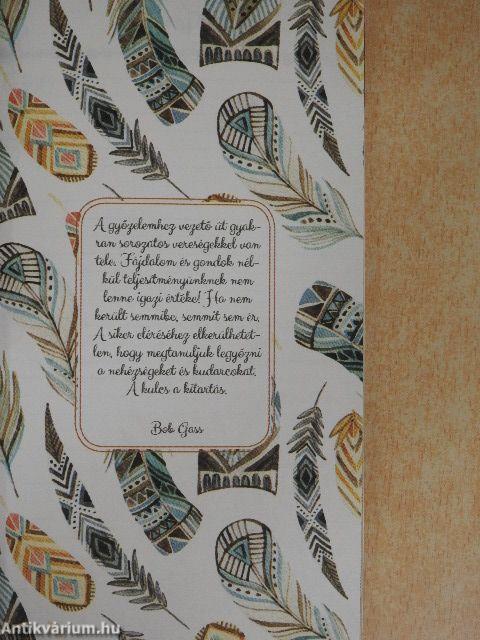 A győzelemhez vezető út gyak-
ran sorozatos vereségekkel van
tele. Fájdalom és gondok nél-
kül teljesítményünknek nem
lenne igazi értéke! Ha nem
került semmibe, semmit sem ér.
A siker eléréséhez elkerülhetet-
len, hogy megtanuljuk legyőzni
a nehézségeket és kudarcokat.
A kulcs a kitartás.
Bob Gass
Antikvárium.hu